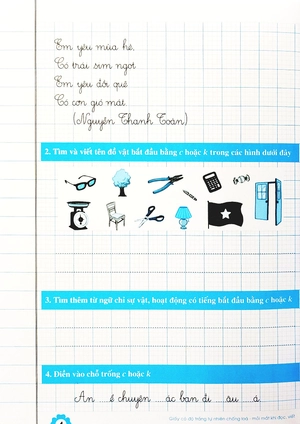 Em yêu mùa hè,
Có trái sim ngọt
Em yêu đồi quê
Có cơn gió mát.
(Nguyễn Thanh Toàn)
2. Tìm và viết tên đồ vật bắt đầu bằng c hoặc k trong các hình dưới đây
3. Tìm thêm từ ngữ chỉ sự vật, hoạt động có tiếng bắt đầu bằng c hoặc k
4. Điền vào chỗ trống c hoặc k
An ...ể chuyện ...ác bạn đi ...âu ...á.